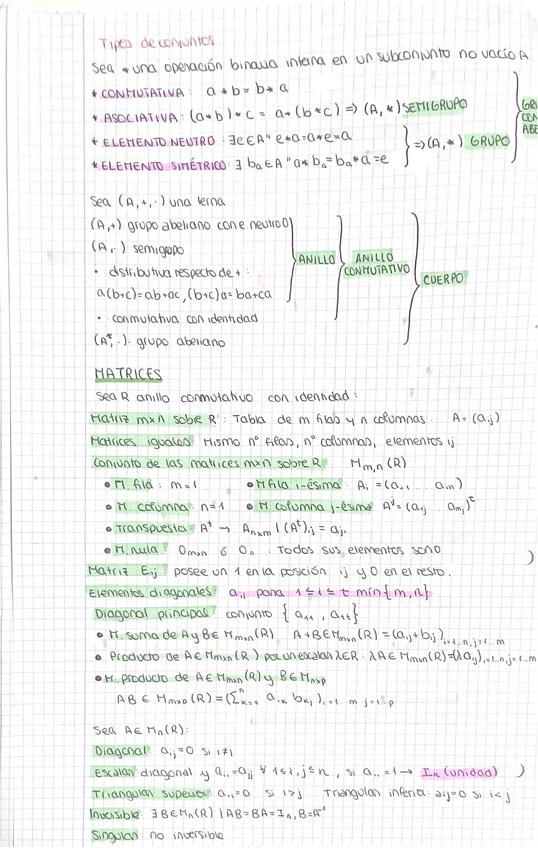 Tipos de conjuntos
Sea * una operación binaria interna en un subconjunto no vacío A
* CONMUTATIVA: a * b = b * a
* ASOCIATIVA: (a * b) * c = a * (b * c) => (A, *) SEMIGRUPO
* ELEMENTO NEUTRO: ∃e∈A " e*a=a*e=a
* ELEMENTO SIMÉTRICO: ∃ bₐ∈A " a*bₐ=bₐ*a=e
=> (A, *) GRUPO
Sea (A, +, ·) una terna
(A,+) grupo abeliano con e neutro 0
(A, ·) semigrupo
· distributiva respecto de + :
a(b+c)=ab+ac, (b+c)a=ba+ca
ANILLO
· conmutativa con identidad
ANILLO CONMUTATIVO
(A*, ·): grupo abeliano
CUERPO
MATRICES
Sea R anillo conmutativo con identidad:
Matriz m×n sobre R: Tabla de m filas y n columnas. A=(aij)
Matrices iguales: Mismo nº filas, nº columnas, elementos ij
Conjunto de las matrices m×n sobre R Mm,n(R)
• M. fila: m=1 • M fila i-ésima: Ai = (ai1 ... ain)
• M. columna: n=1 • M. columna j-ésima A^j=(a1j ... amj)^t
• Transpuesta: A^t → An×m | (A^t)ij = aji
• M. nula: Om×n ó On. Todos sus elementos son 0
Matriz Eij posee un 1 en la posición ij y 0 en el resto.
Elementos diagonales: aii para 1≤i≤t mín{m,n}
Diagonal principal: conjunto {a11, ..., att}
• M. suma de A y B∈Mm×n(R) A+B∈Mm×n(R)=(aij+bij)i=1..n, j=1..m
• Producto de A∈Mm×n(R) por un escalar λ∈R: λA∈Mm×n(R)=(λaij)i=1..n, j=1..m
• M. producto de A∈Mm×n(R) y B∈Mn×p
AB∈Mm×p(R)=(∑ⁿk=1 aik bkj)i=1..m j=1..p
Sea A∈Mn(R):
Diagonal: aij=0 si i≠j
Escalar: diagonal y aii=ajj ∀ 1≤i,j≤n, si aii=1 → In (unidad)
Triangular superior: aij=0 si i>j Triangular inferior: aij=0 si i<j
Invesible: ∃B∈Mn(R) | AB=BA=In, B=A⁻¹
Singular: no inversible